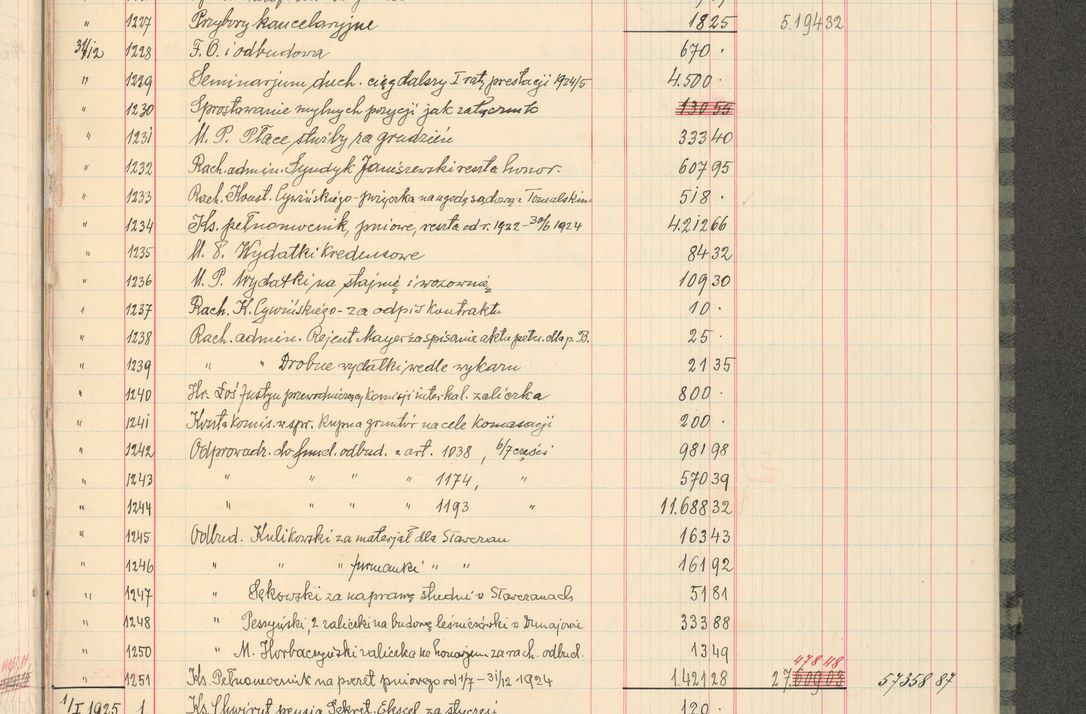 " 1227 Przybory kancelaryjne 18 25 5.194 32
31/12 1228 F. O. i odbudowa 670 ·
" 1229 Seminarjum duch. ciąg dalszy I raty prestacji 1924/5 4.500 ·
" 1230 Sprostowanie mylnych pozycji jak załącznik 130 55
" 1231 M. P. Płace służby za grudzień 333 40
" 1232 Rach. admin. Syndyk Janiszewski reszta honor. 607 95
" 1233 Rach. Konst. Cywińskiego - na ugodę sądową z 518 ·
" 1234 Ks. pełnomocnik, pniowe, reszta od r. 1922 - 30/6 1924 4.212 66
" 1235 M. P. Wydatki kredensowe 84 32
" 1236 M. P. Wydatki na stajnię i wozownię 109 30
" 1237 Rach. K. Cywińskiego - za odpis kontraktu 10 ·
" 1238 Rach. admin. Rejent Mayer za spisanie aktu dla p. B. 25 ·
" 1239 " " Drobne wydatki wedle wykazu 21 35
" 1240 Hr. Łoś Justyn przewodniczący komisji zaliczka 800 ·
" 1241 Koszta komis. w spr. kupna gruntów na cele komasacji 200 ·
" 1242 Odprowadz. do fund. odbud. z art. 1038, 6/7 części 981 98
" 1243 " " " " 1174, " 570 39
" 1244 " " " " 1193 " 11.688 32
" 1245 Odbud. Kulikowski za materjał dla Stawczan 163 43
" 1246 " " " furmanki " " 161 92
" 1247 " Sękowski za naprawę studni w Stawczanach 51 81
" 1248 " Peszyński, 2 zaliczki na budowę leśniczówki w Dunajowie 333 88
" 1250 " M. Horbaczyński zaliczka na honorjum za rach. odbud. 13 49
478 48
" 1251 Ks. Pełnomocnik na poczet pniowego od 1/7 - 31/12 1924 1.421 28 27 609 03 57358 87
1/I 1925 1 Ks. Chwirut pensja Sekret. Ekscel. za styczeń 120 ·